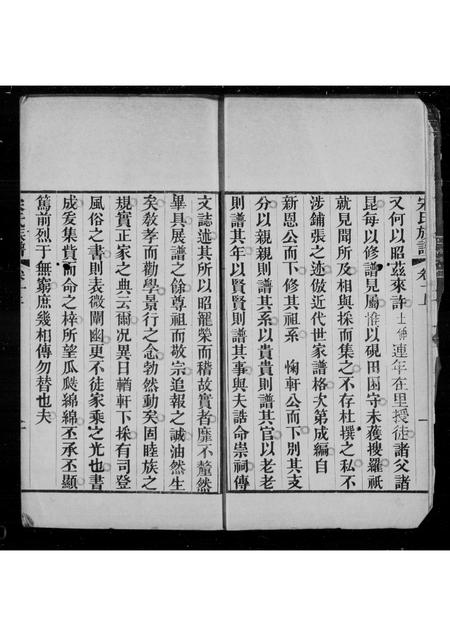 宋氏族譜 卷上
又何以昭茲來許士伸連年在里授徒諸父諸
昆每以修譜見屬惟以硯田固守未獲搜羅祇
就見聞所及相與採而集之不存杜撰之私不
涉鋪張之迹倣近代世家譜格次第成編自
新恩公而下修其祖系 鞠軒公而下別其支
分以親親則譜其系以貴貴則譜其官以老老
則譜其年以賢賢則譜其事與夫誥命崇祠傳
文誌述其所以昭寵榮而稽故實者靡不釐然
畢具展譜之餘尊祖而敬宗追報之誠油然生
矣敎孝而勸學景行之念勃然動矣固睦族之
規實正家之典云爾况異日輶軒下採有司登
風俗之書則表微闡幽更不徒家乘之光也書
成爰集貲而命之梓所望瓜瓞綿綿丕承丕顯
篤前烈于無窮庶幾相傳勿替也夫